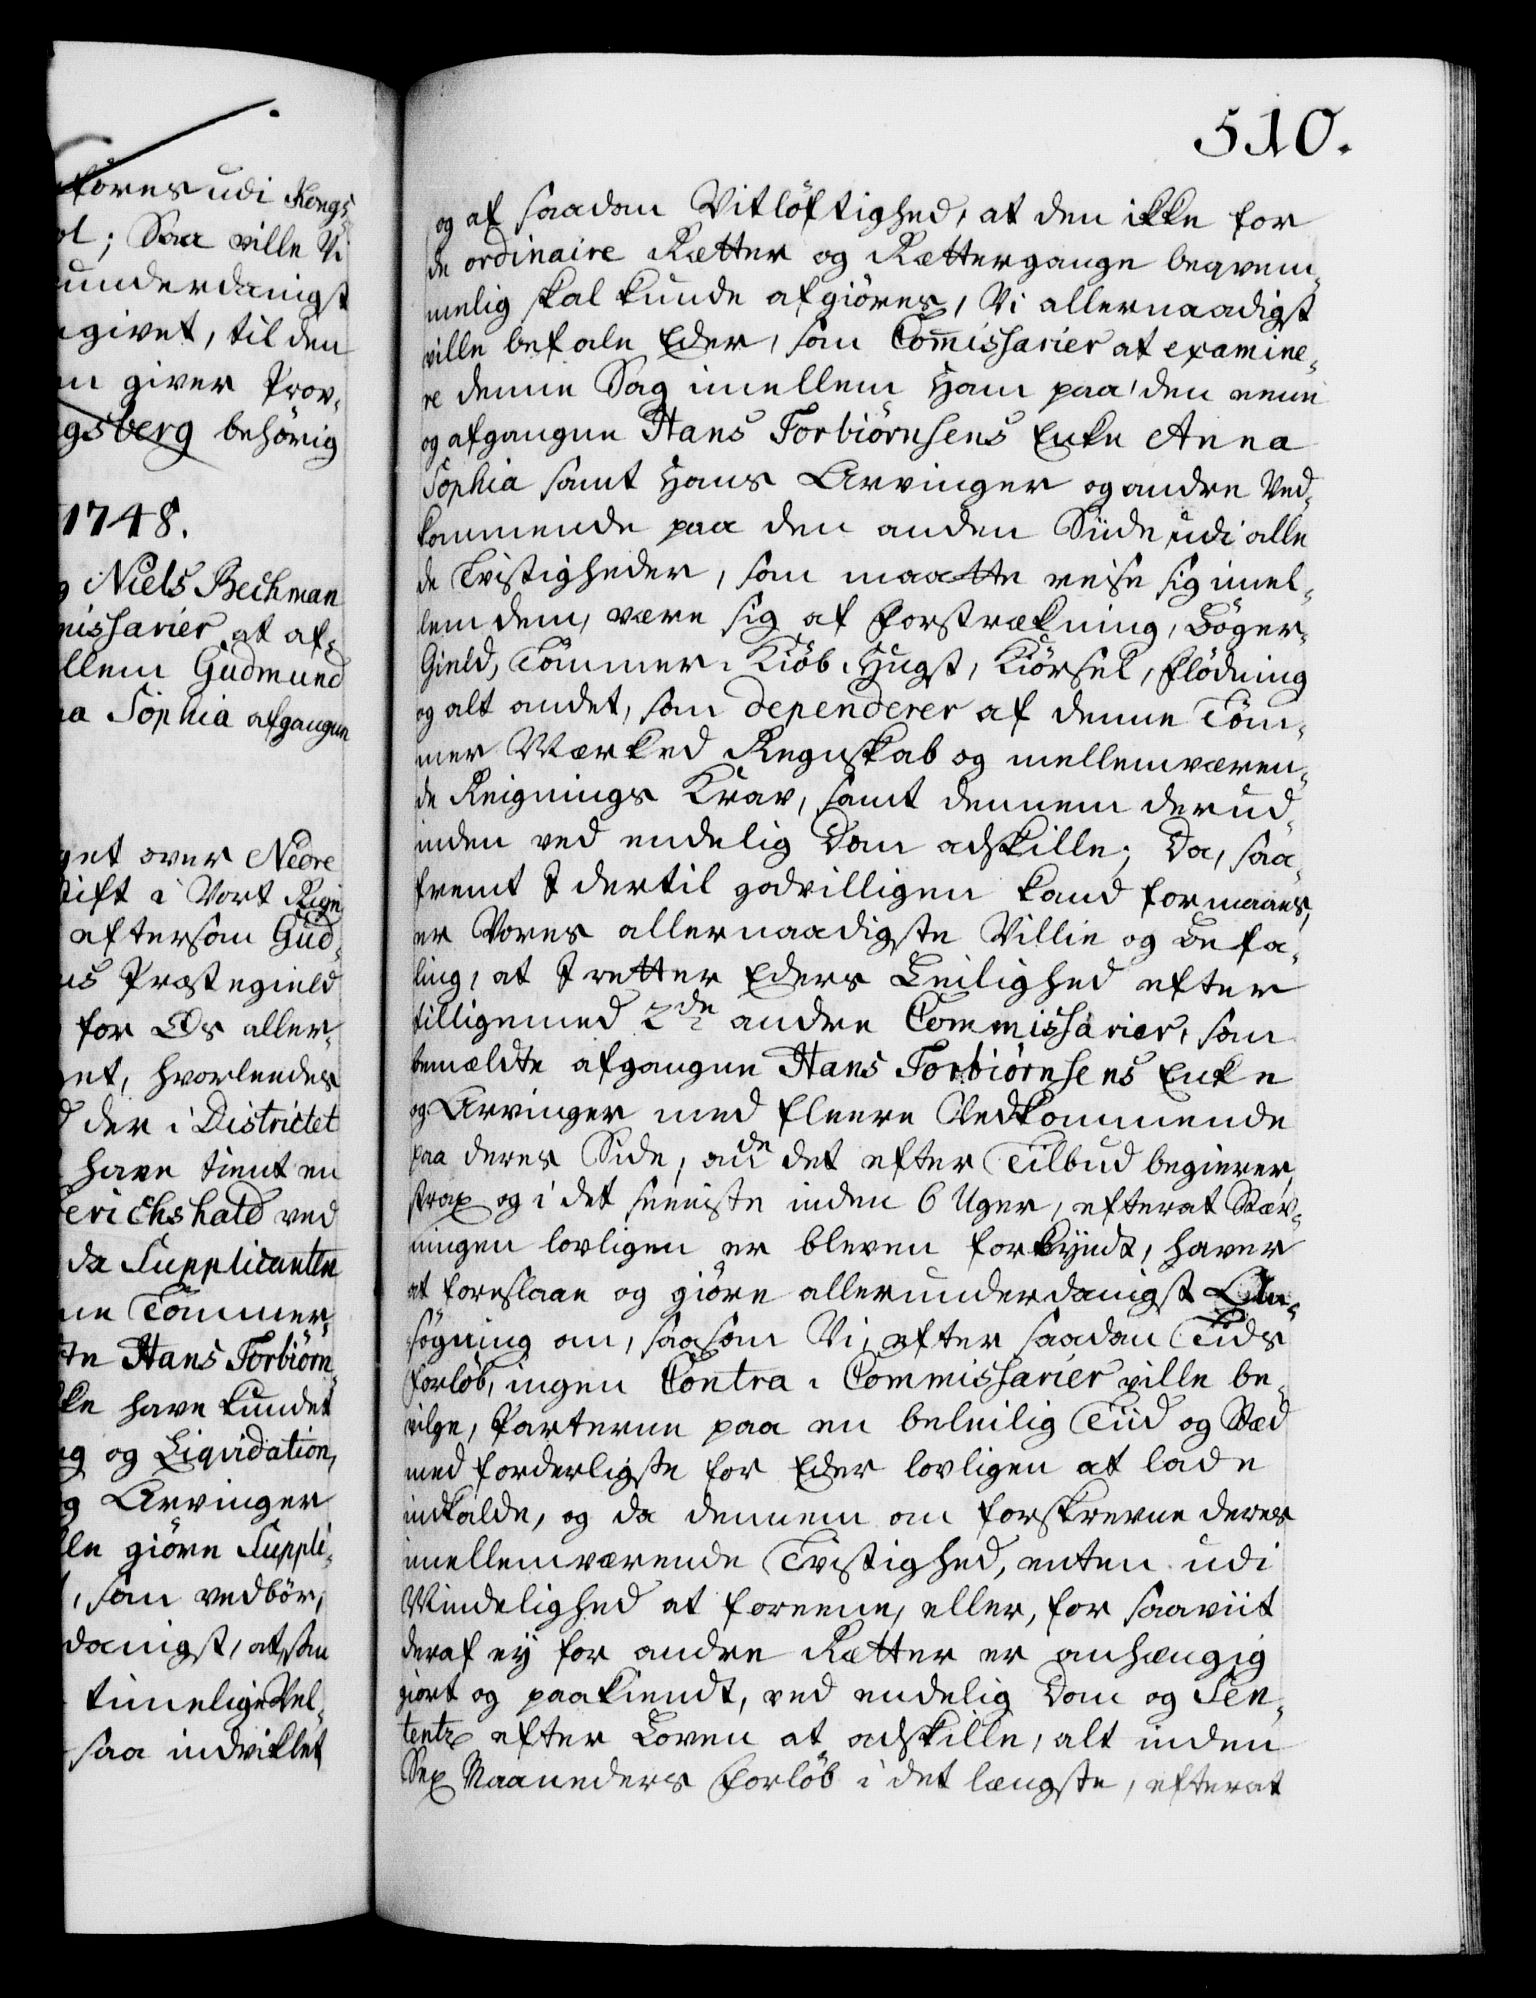 føres udi Kongs-
ol; Saa ville Vi
underdanigst
givet, til den
en giver Prov-
gsberg behörig
1748.
Niels Bechman
missarier at af-
llem Gudmund
na Sophia afgangne
get over Nedre
Stift i Vort Rige
eftersom Gud-
us Præstegield
for Os aller-
get, hvorledes
der i Districtet
have tient en
erichshald ved
da Supplicanten
ne Tömmer-
te Hans Torbiörn-
ke have kundet
ng og Liqvidation,
og Arvinger
lle giöre Suppli-
, som vedbör,
danigst, at, som
timelige Vel-
saa indviklet
510.
og af saadan Vitlöftighed, at den ikke for
de ordinaire Rætter og Rættergange beqvem-
melig skal kunde afgiöres, Vi allernaadigst
ville befale Eder, som Com̄issarier at examine-
re denne Sag imellem Ham paa den eene
og afgangne Hans Torbiörnsens Enke Anna
Sophia samt Hans Arvinger og andre Ved-
kommende paa den anden Siide udi alle
de Tvistigheder, som maatte reise sig imel-
lem dem, være sig af Forstrækning, Böger-
Gield, Tömmer-Kiöb, Hugst, Kiörsel, Flödning
og alt andet, som dependerer af denne Töm-
mer Værked Regnskab og mellemværen-
de Reignings Krav, samt dennem derud-
inden ved endelig Dom adskille; Da, saa-
fremt I dertil godvilligen kand formaaes,
er Vores allernaadigste Villie og Befa-
ling, at I retter Eders Leilighed efter
tilligemed 2de andre Commissarier, som
bemældte afgangne Hans Torbiörnsens Enke
og Arvinger med fleere Vedkommende
paa deres Side, om de det efter Tilbud begierer,
strax og i det seeniste inden 6 Uger, efterat Stæv-
ningen lovligen er bleven forkyndt, haver
at foreslaae og giöre allerunderdanigst An-
sögning om, saasom Vi, efter saadan Tids
Forlöb, ingen Contra-Commissarier ville be-
vilge, Parterne paa en beleilig Tiid og Stæd
med forderligste for Eder lovligen at lade
indkalde, og da dennem om forskrevne deres
imellemværende Tvistighed, enten udi
Mindelighed at foreene, eller, for saaviit
deraf ey for andre Rætter er anhængig
giort og paakiendt, ved endelig Dom og Sen-
tentz efter Loven at adskille, alt inden
Sex Maaneders Forlöb i det længste, efterat